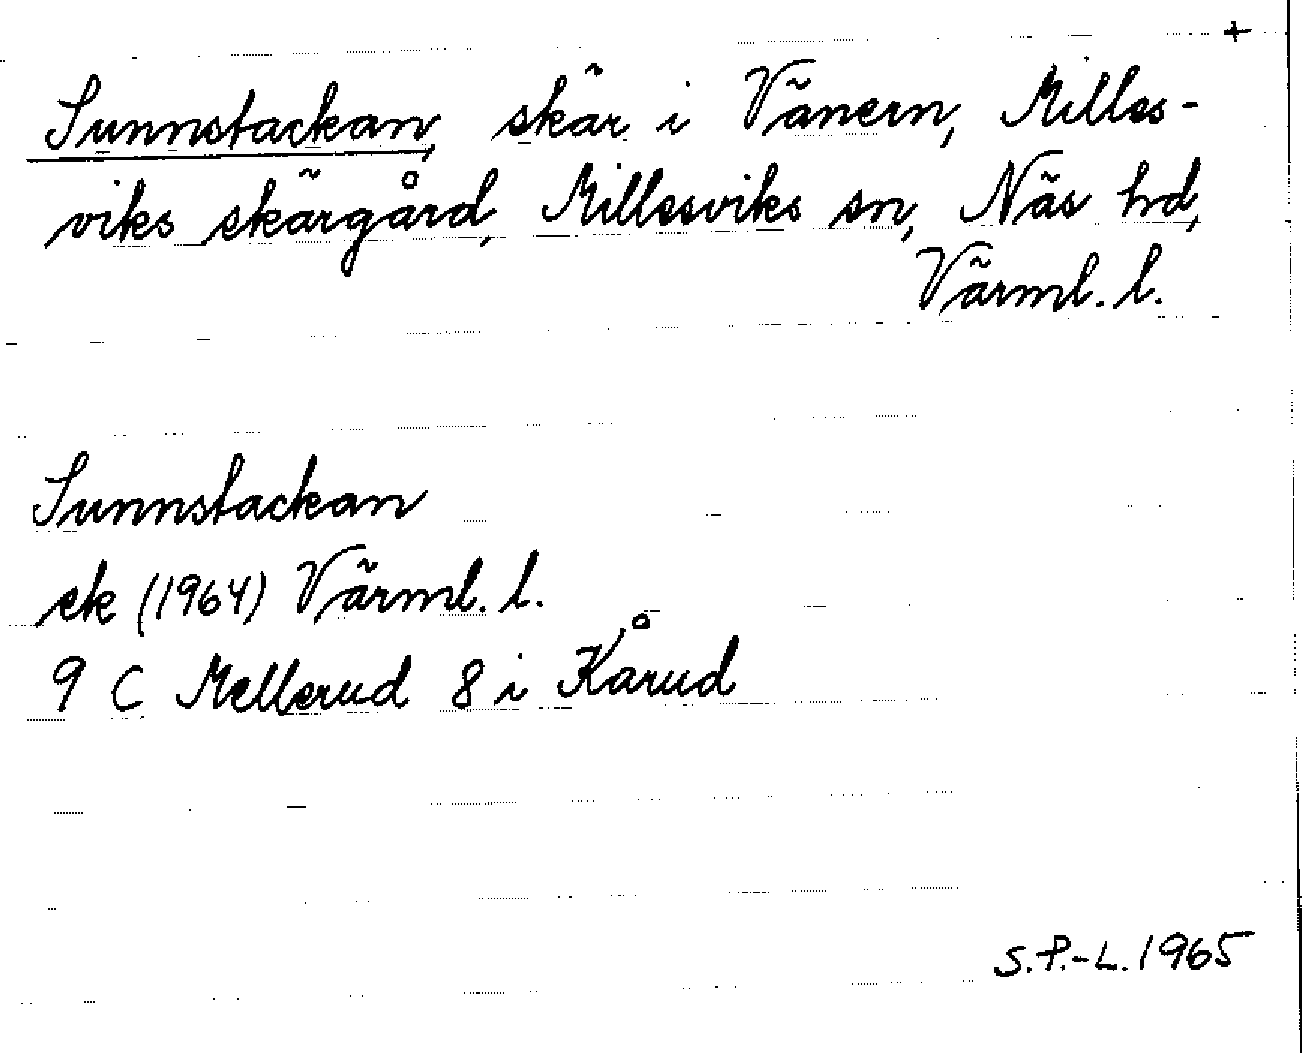 +
Sunnstackan, skär i Vänern, Milles-
viks skärgård, Millesviks sn, Näs hd,
Värml. l.
Sunnstackan
ek (1964) Värml. l.
9 C Mellerud 8 i Kårud
S.P.-L. 1965